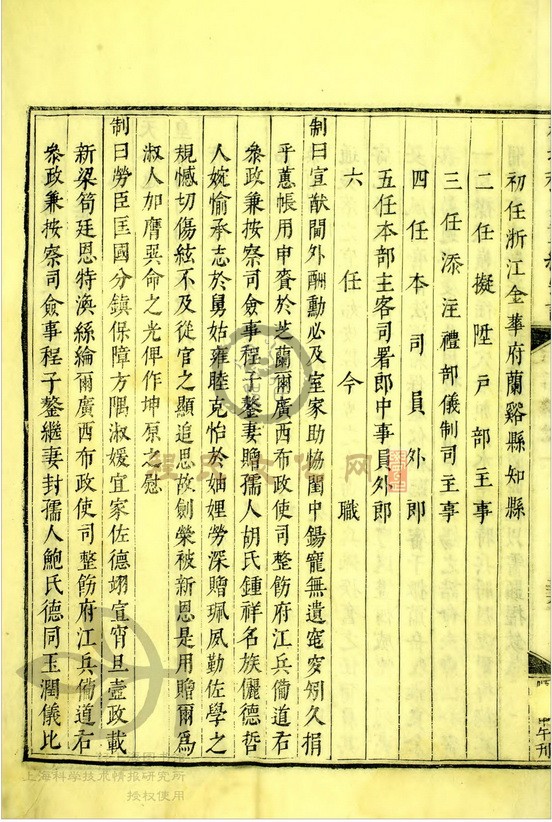 初任浙江金華府蘭谿縣知縣
二任擬陞戶部主事
三任添注禮部儀制司主事
四任本司員外郎
五任本部主客司署郎中事員外郎
六任今職
制曰宣猷閫外酬勳必及室家助恊閨中錫寵無遺窀穸矧久捐
乎蕙帳用申賚於芝蘭爾廣西布政使司整飭府江兵備道右
叅政兼按察司僉事程子鏊妻贈孺人胡氏鍾祥名族儷德哲
人婉愉承志於舅姑雍睦克怡於妯娌勞深贈珮夙勤佐學之
規憾切傷絃不及從官之顯追思故劍榮被新恩是用贈爾爲
淑人如膺巽命之光俾作坤原之慰
制曰勞臣匡國分鎮保障方隅淑媛宜家佐德翊宣宵旦壼政載
新梁笥廷恩特渙絲綸爾廣西布政使司整飭府江兵備道右
叅政兼按察司僉事程子鏊繼妻封孺人鮑氏德同玉潤儀比
甲午刊
程氏文化网
上海圖書館
上海科学技术情报研究所
授权使用